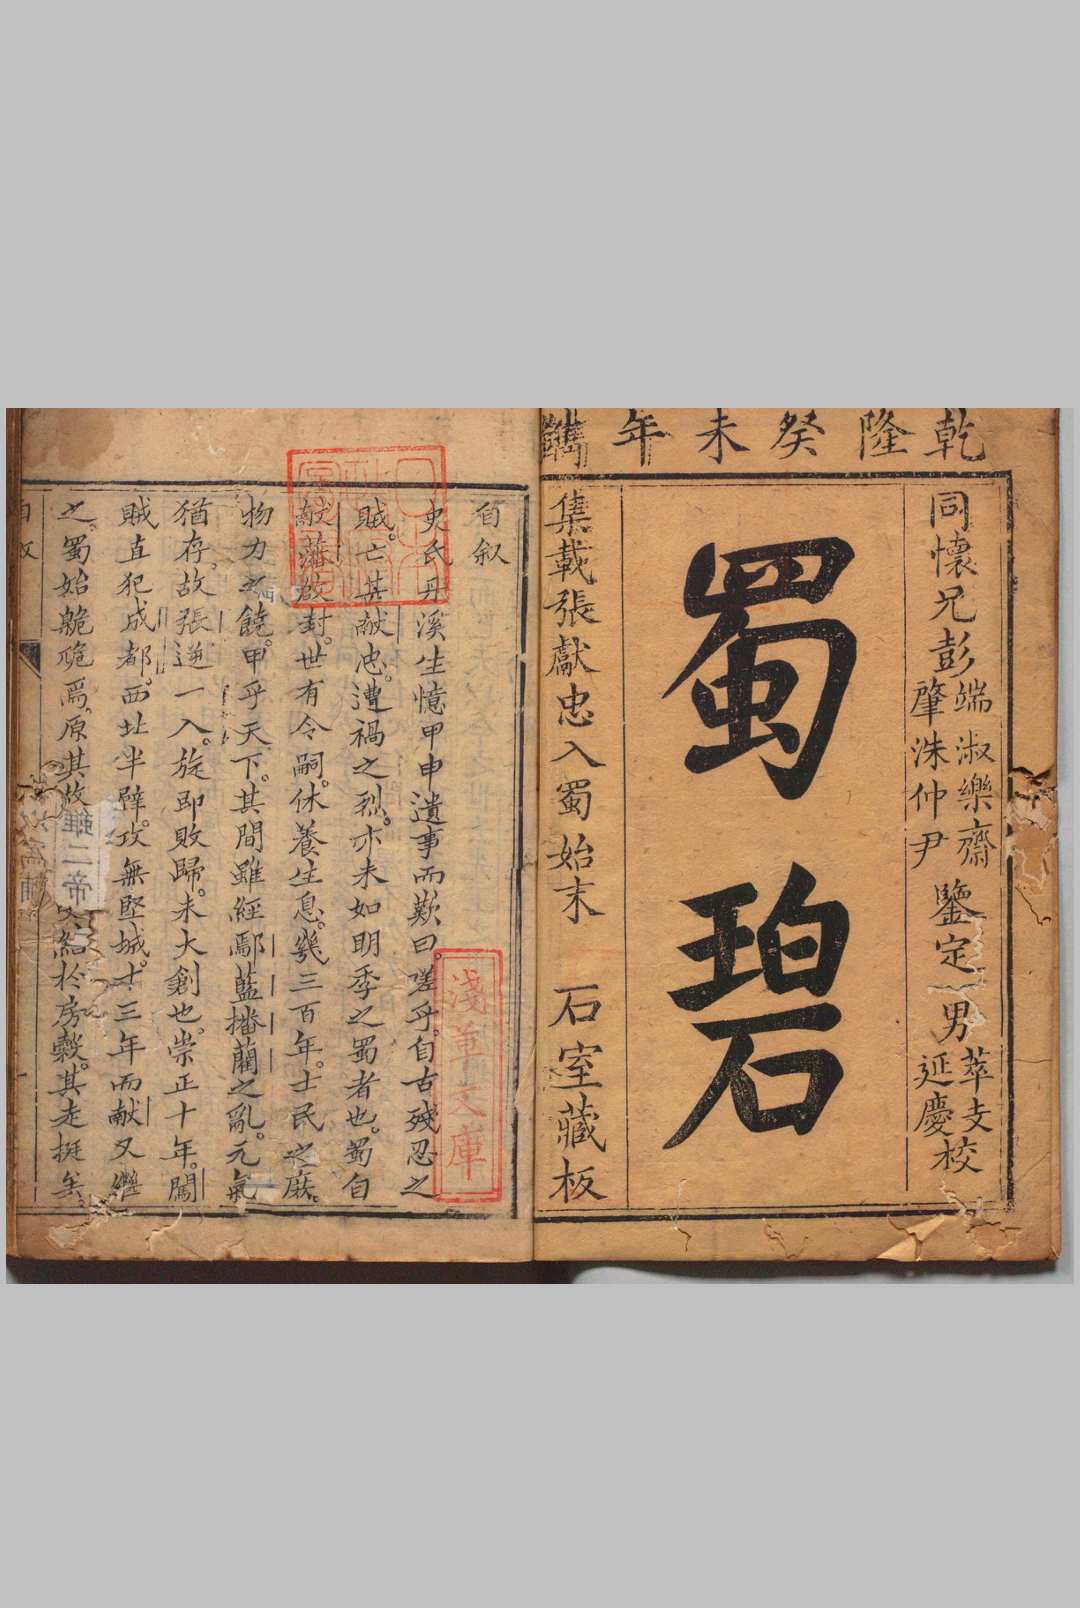 乾隆癸未年鐫
同懷兄彭端淑樂齋肇洙仲尹鑒定男萃支延慶校
蜀碧
集載張獻忠入蜀始末 石室藏板
自叙
史氏丹溪生憶甲申遺事而歎曰。嗟乎。自古殘忍之
賊。亡甚獻忠。遭禍之烈。亦未如明季之蜀者也。蜀自
獻藩啟封。世有令嗣。休養生息。幾三百年。士民之庥。
物力之饒。甲乎天下。其間雖經鄢藍播藺之亂。元氣
猶存。故張逆一入。旋即敗歸。未大創也。崇正十年。闖
賊直犯成都。西北半壁。攻無堅城。十三年而獻又繼
之。蜀始臲卼焉。原其故雖二帝 紹於房 。其走挺矣。
淺草文庫